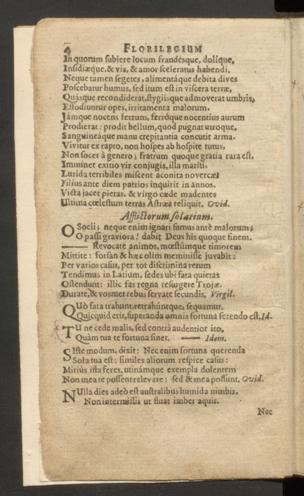 4 FLORILEGIUM
In quorum subiere locum fraudésque, dolíque,
Insidiæque,& vis, & amor sceleratus habendi.
Neque tamen segetes, alimentáque debita dives
Poscebatur humus, sed itum est in viscera terræ,
Quásque recondiderat, stygiísque admoverat umbris,
Effodiuntur opes, irritamenta malorum.
Jámque nocens ferrum, ferróque nocentius aurum
Prodierat: prodit bellum, quod pugnat utroque,
Sanguineáque manu crepitantia concutit arma.
Vivitur ex rapto, non hospes ab hospite tutus.
Non socer à genero; fratrum quoque gratia rara est.
Imminet exitio vir conjugis, illa mariti.
Lurida terribiles miscent aconita novercæ:
Filius ante diem patrios inquirit in annos.
Victa jacet pietas. & virgo cæde madentes
Ultima cœlestum terras Astræa reliquit. Ovid.
Afflictorum solatium.
O Socii; neque enim ignari sumus antè malorum;
O passi graviora! dabit Deus his quoque finem.
— Revocate animos, mœstúmque timorem
Mittite: forsan & hæc olim meminisse juvabit:
Per varios casus, per tot discrimina rerum
Tendimus in Latium, sedes ubi fata quietas
Ostendunt: illic fas regna resurgere Trojæ.
Durate, & vosmet rebus servate secundis. Virgil.
QUò fata trahunt retrahúntque, sequamur.
Quicquid erit, superanda omnis fortuna ferendo est. Id.
TU ne cede malis, sed contrà audentior ito,
Quàm tua te fortuna sinet. — Idem.
SIste modum, dixit: Nec enim fortuna querenda
Sola tua est: similes aliorum respice casus:
Mitiùs ista feres. utinámque exempla dolentem
Non mea te possent relevare: sed & mea possunt. Ovid.
NUlla dies adeò est australibus humida nimbis.
Non intermissis ut fluat imber aquis.
Nec